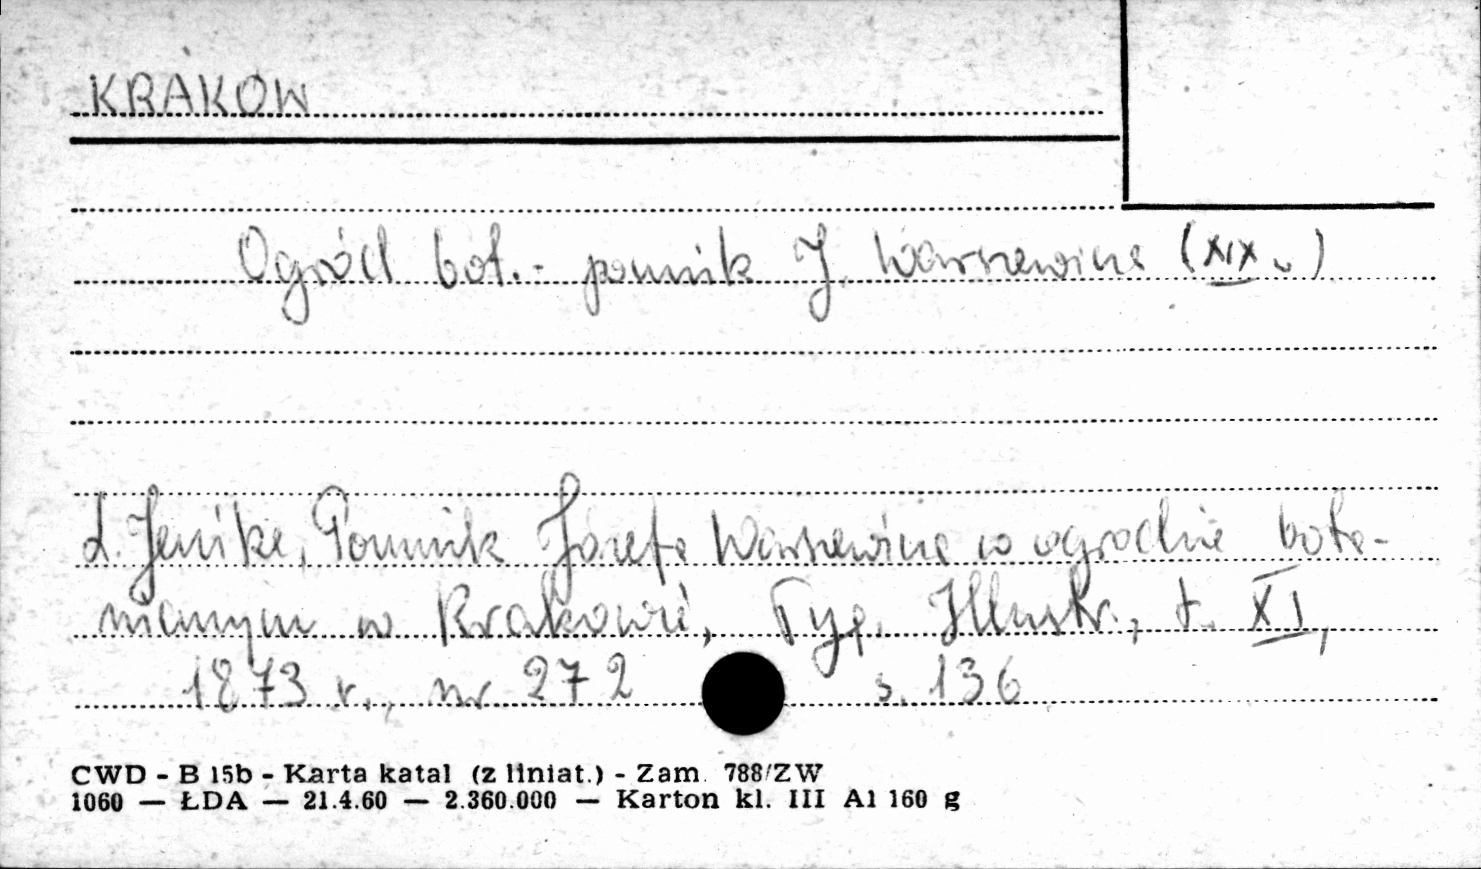 KRAKOW
Ogród bot. - pomnik J. Warszewicza (XIX w)
L. Jenike, Pomnik Józefa Warszewicza w ogrodzie bota-
nicznym w Krakowie, Tyg. Illustr., t. XI,
1873 r., nr 272 s. 136
CWD - B 15b - Karta katal (z liniat.) - Zam. 788/ZW
1060 — ŁDA — 21.4.60 — 2.360.000 — Karton kl. III A1 160 g